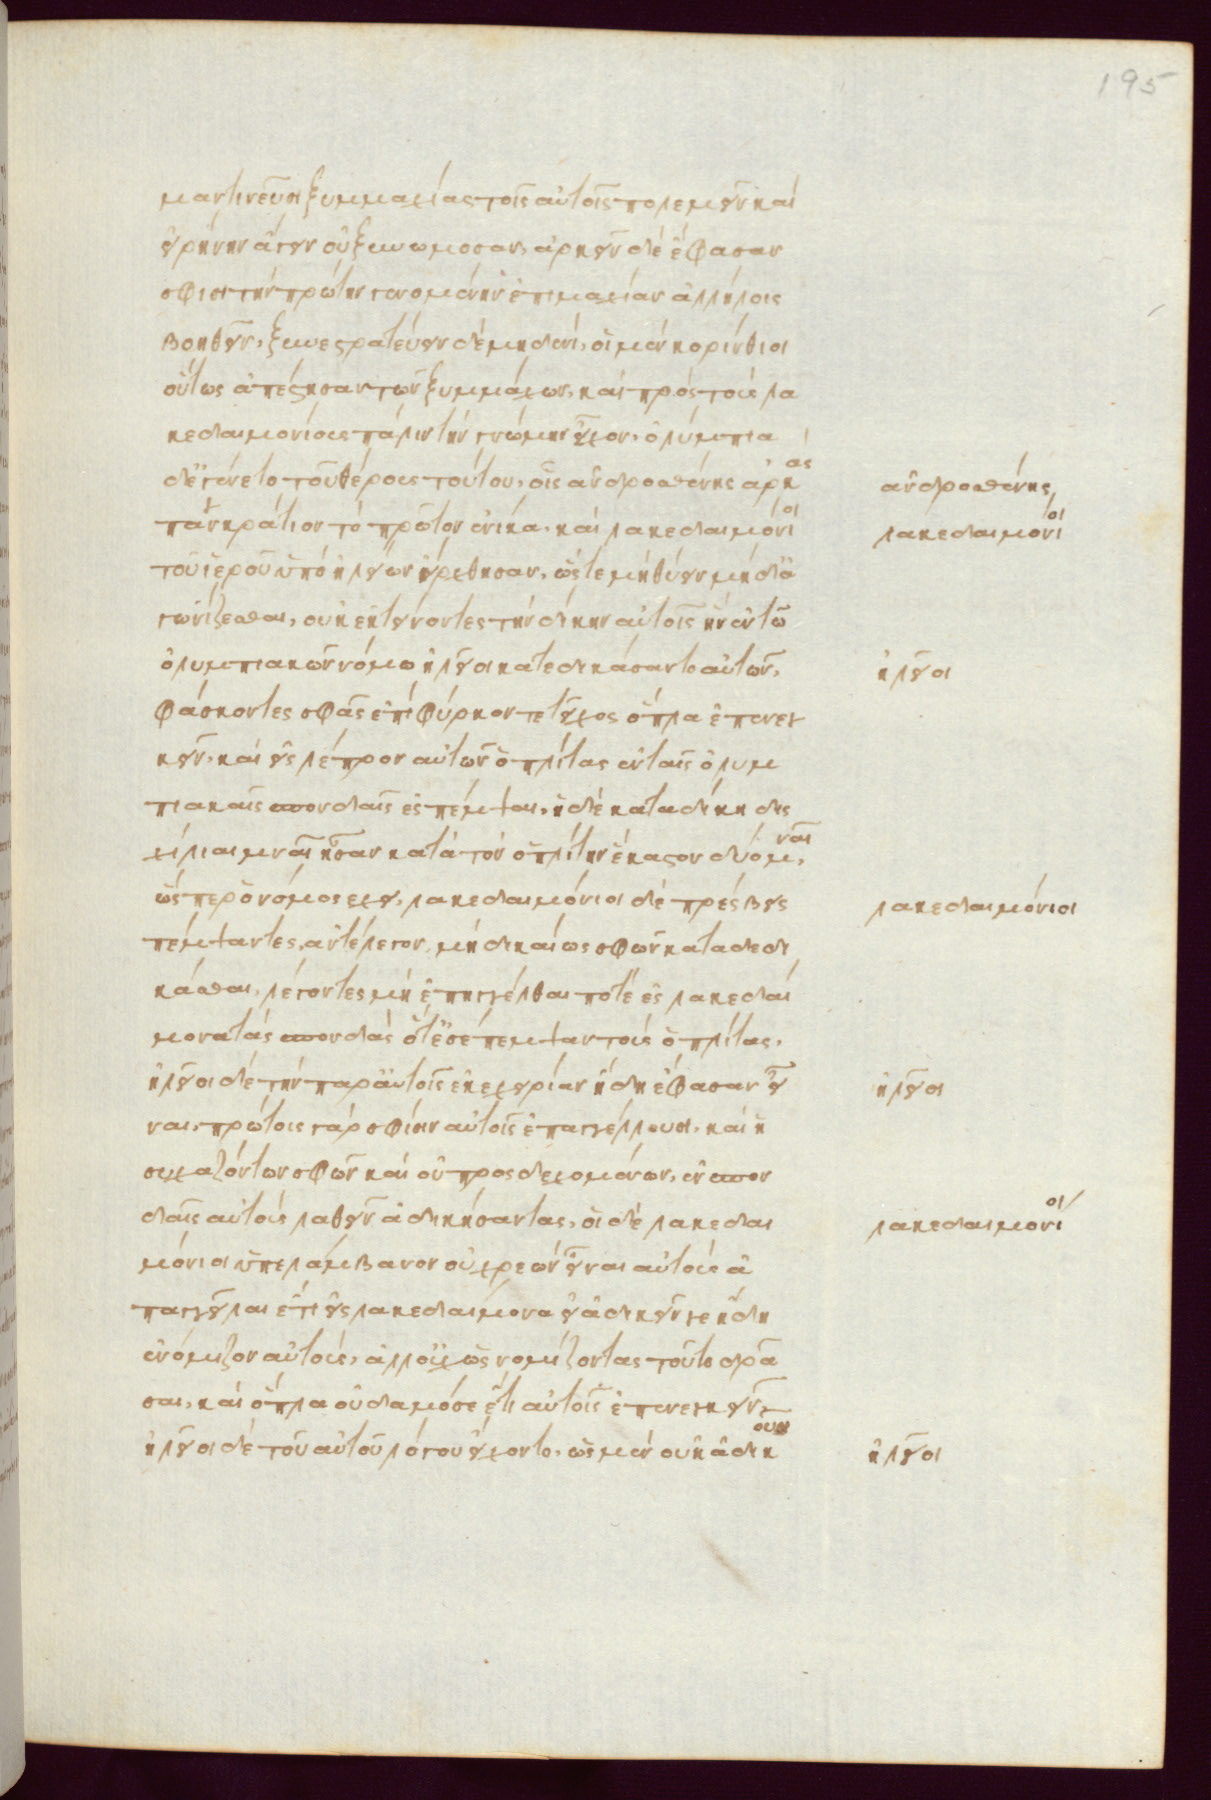 195
μαντινεῦσι ξυμμαχίας τοῖς αὐτοῖς πολεμεῖν καὶ
εἰρήνην ἄγειν οὐ ξυνώμοσαν, ἀρκεῖν δὲ ἔφασαν
σφίσι τὴν πρώτην γενομένην ἐπιμαχίαν ἀλλήλοις
βοηθεῖν, ξυνεστρατεύειν δὲ μηδενί, οἱ μὲν κορίνθιοι
οὕτως ἀπέστησαν τῶν ξυμμάχων, καὶ πρὸς τοὺς λα
κεδαιμονίους πάλιν τὴν γνώμην εἶχον, ὀλύμπια
δ' ἐγένετο τοῦ θέρους τούτου, οἷς ἀνδροσθένης ἀρκὰς
ἀνδροσθένης
παγκράτιον τὸ πρῶτον ἐνίκα, καὶ λακεδαιμόνιοι
λακεδαιμόνιοι
τοῦ ἱεροῦ ὑπὸ ἠλείων εἴρχθησαν, ὥστε μὴ θύειν μηδ' ἀ
γωνίζεσθαι, οὐκ ἐκτίνοντες τὴν δίκην αὐτοῖς ἣν ἐν τῷ
ὀλυμπιακῷ νόμῳ ἠλεῖοι κατεδικάσαντο αὐτῶν,
ἠλεῖοι
φάσκοντες σφᾶς ἐπὶ φύρκον τεῖχος ὅπλα ἐπενεγ
κεῖν, καὶ εἰς λέπρον αὐτῶν ὁπλίτας ἐν ταῖς ὀλυμ
πιακαῖς σπονδαῖς ἐσπέμψαι, ἡ δὲ καταδίκη δις
χίλιαι μναῖ ἦσαν κατὰ τὸν ὁπλίτην ἕκαστον δύο μναῖ,
ὥσπερ ὁ νόμος ἔχει, λακεδαιμόνιοι δὲ πρέσβεις
λακεδαιμόνιοι
πέμψαντες, ἀντέλεγον, μὴ δικαίως σφῶν καταδεδι
κάσθαι, λέγοντες μὴ ἐπηγγέλθαι ποτὲ ἐς λακεδαί
μονα τὰς σπονδὰς ὅτ' ἐσέπεμψαν τοὺς ὁπλίτας,
ἠλεῖοι δὲ τὴν παρ' αὐτοῖς ἐκεχειρίαν ἤδη ἔφασαν εἶ
ἠλεῖοι
ναι, πρώτοις γὰρ σφίσιν αὐτοῖς ἐπαγγέλλουσι, καὶ ἡ
συχαζόντων σφῶν καὶ οὐ προσδεχομένων, ἐν σπον
δαῖς αὐτοὺς λαθεῖν ἀδικήσαντας, οἱ δὲ λακεδαι
λακεδαιμόνιοι
μόνιοι ὑπελάμβανον οὐ χρεὼν εἶναι αὐτοὺς ἀ
παγγεῖλαι ἔτι εἰς λακεδαίμονα εἰ ἀδικεῖν γε ἤδη
ἐνόμιζον αὐτούς, ἀλλ' οὐχ ὡς νομίζοντας τοῦτο δρᾶ
σαι, καὶ ὅπλα οὐδαμόσε ἔτι αὐτοῖς ἐπενεγκεῖν,
ἠλεῖοι δὲ τοῦ αὐτοῦ λόγου εἴχοντο, ὡς μὲν οὐκ ἀδικοῦσι
ἠλεῖοι